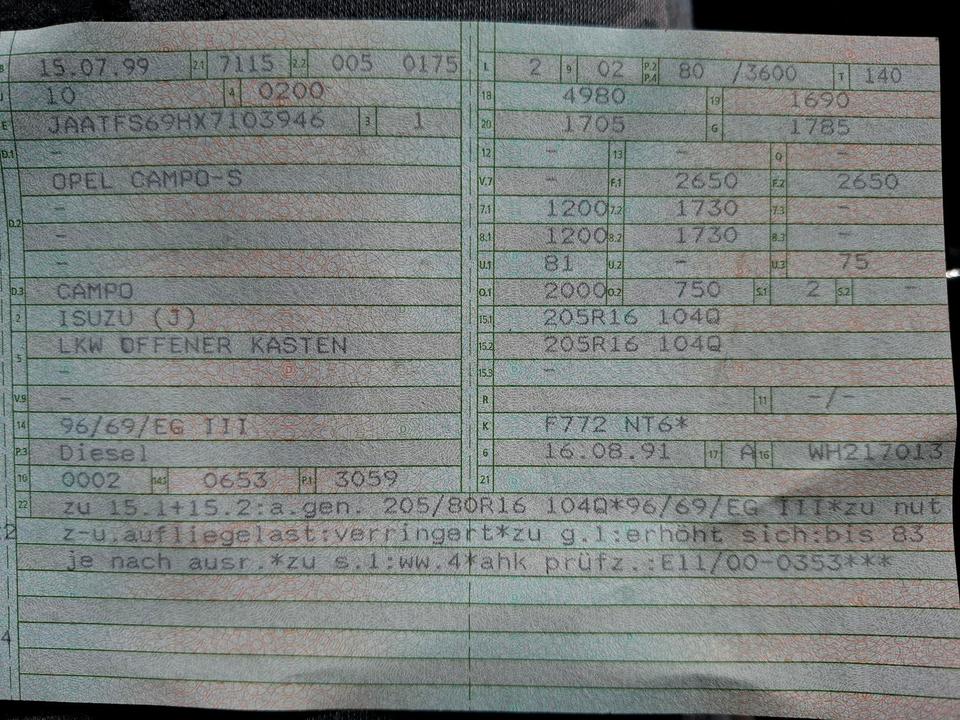 B 15.07.99 2.1 7115 2.2 005 0175
J 10 4 0200
E JAATFS69HX7103946 3 1
D.1 -
OPEL CAMPO-S
D.2 -
-
-
D.3 CAMPO
2 ISUZU (J)
5 LKW OFFENER KASTEN
-
V.9 -
14 96/69/EG III
P.3 Diesel
10 0002 14.1 0653 P.1 3059
L 2 9 02 P.2 P.4 80 /3600 T 140
18 4980 19 1690
20 1705 G 1785
12 - 13 - Q -
V.7 - F.1 2650 F.2 2650
7.1 1200 7.2 1730 7.3 -
8.1 1200 8.2 1730 8.3 -
U.1 81 U.2 - U.3 75
O.1 2000 O.2 750 S.1 2 S.2 -
15.1 205R16 104Q
15.2 205R16 104Q
15.3 -
R 11 -/-
K F772 NT6*
6 16.08.91 17 A 16 WH217013
21
22 zu 15.1+15.2:a.gen. 205/80R16 104Q*96/69/EG III*zu nut
z-u.aufliegelast:verringert*zu g.1:erhöht sich:bis 83
je nach ausr.*zu s.1:ww.4*ahk prüfz.:E11/00-0353***